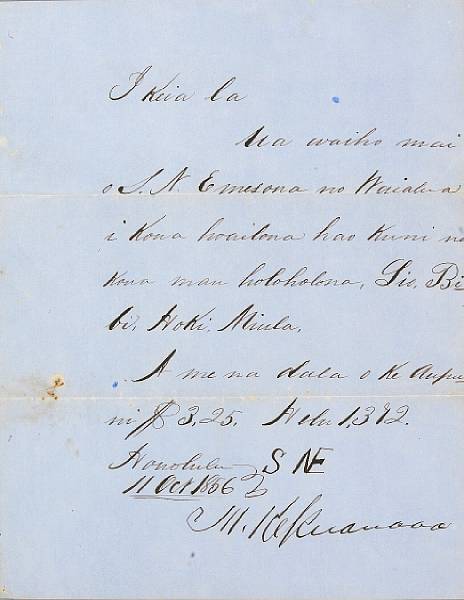 I Keia la
Ua waiho mai
o S. N Emesona no Waialua
i kona hoailona hao kuni no
kona mau holoholona, Lio, Bi
bi, Hoki, Miula,
A me na dala o Ke Aupu
ni $ 3,25. Helu 1,312.
Honolulu S NE
11 Oct 1856
M. Kekuanaoa